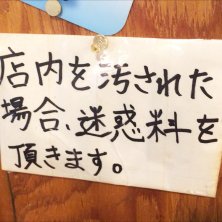 店内を汚された
場合、迷惑料を
頂きます。